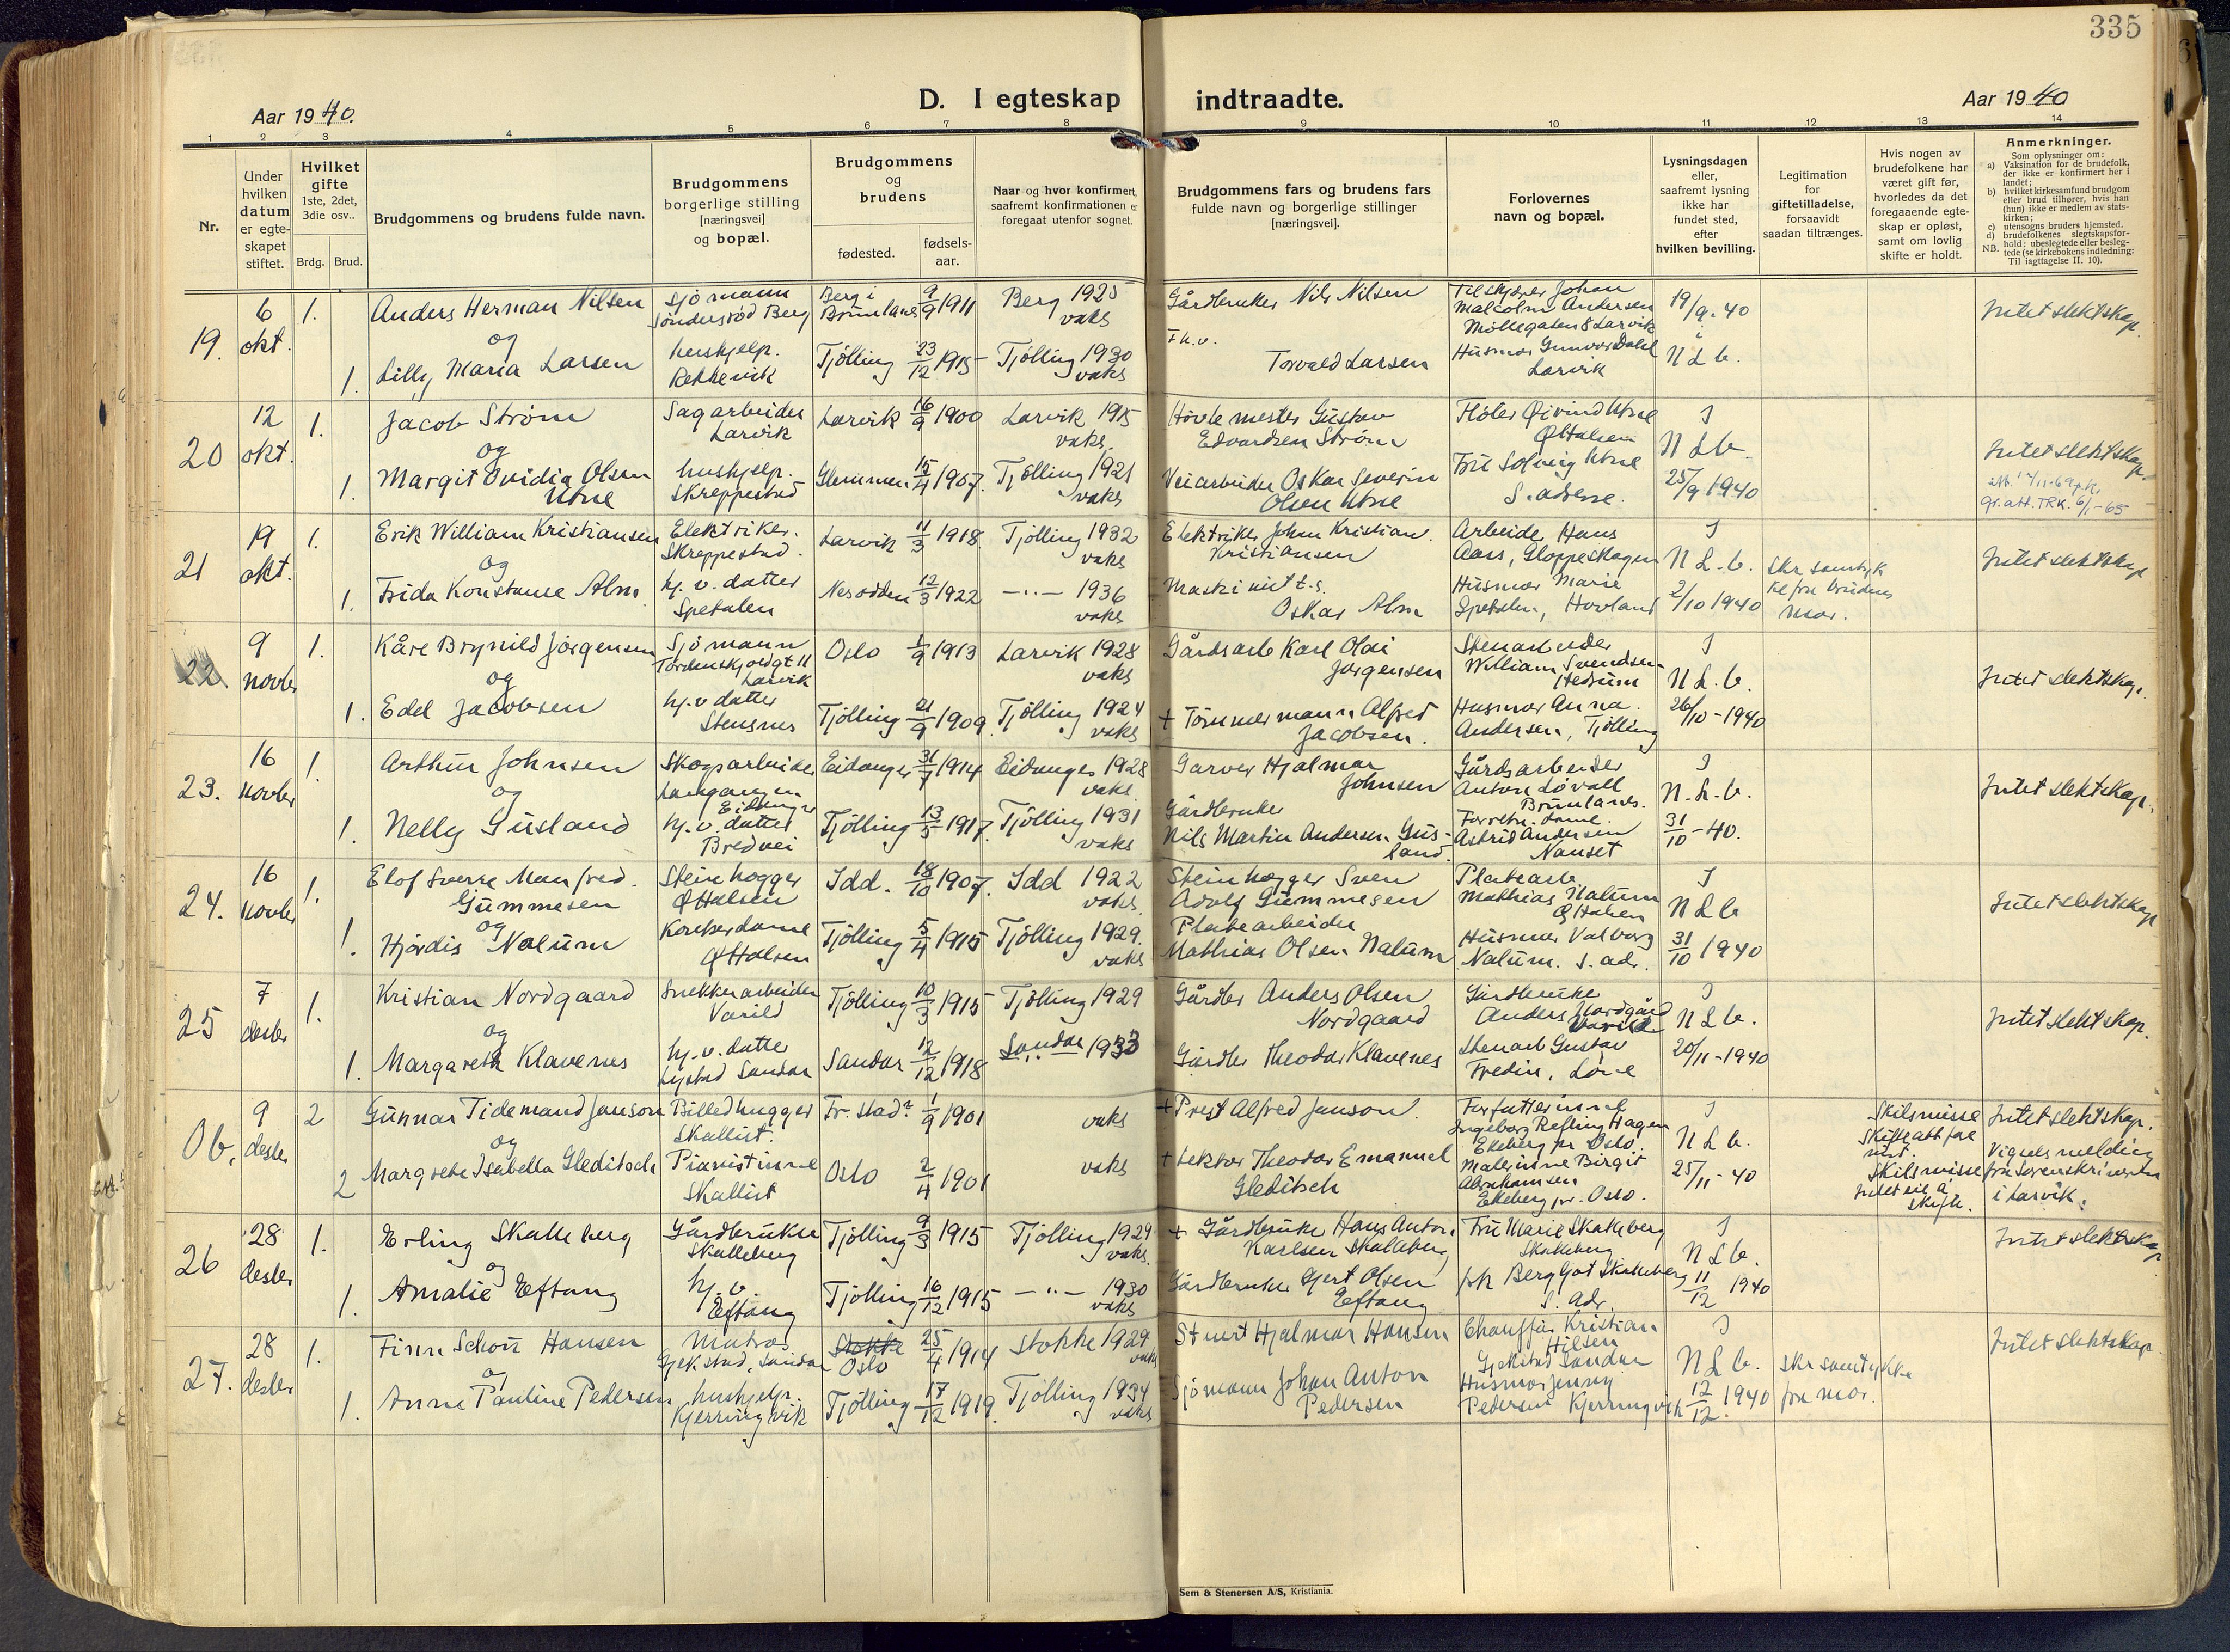 335
Aar 1940.
D. I egteskap indtraadte.
Aar 1940
1 2 3 4 5 6 7 8 9 10 11 12 13 14
Nr.
Under hvilken datum er egteskapet stiftet.
Hvilket gifte 1ste, 2det, 3die osv..
Brdg. Brud.
Brudgommens og brudens fulde navn.
Brudgommens borgerlige stilling [næringsvei] og bopæl.
Brudgommens og brudens
fødested.
fødsels-aar.
Naar og hvor konfirmert, saafremt konfirmationen er foregaat utenfor sognet.
Brudgommens fars og brudens fars fulde navn og borgerlige stillinger [næringsvei].
Forlovernes navn og bopæl.
Lysningsdagen eller, saafremt lysning ikke har fundet sted, efter hvilken bevilling.
Legitimation for giftetilladelse, forsaavidt saadan tiltrænges.
Hvis nogen av brudefolkene har været gift før, hvorledes da det foregaaende egteskap er opløst, samt om lovlig skifte er holdt.
Anmerkninger.
Som oplysninger om:
a) Vaksination for de brudefolk, der ikke er konfirmert her i landet;
b) hvilket kirkesamfund brudgom eller brud tilhører, hvis han (hun) ikke er medlem av statskirken;
c) utensogns bruders hjemsted.
d) brudefolkenes slegtskapsforhold: ubeslegtede eller beslegtede (se kirkebokens indledning: Til iagttagelse II. 10).
NB.
19. 6 okt. 1. Anders Herman Nilsen Sjömann Sönderstöd Berg Berg i Brunlanes 9/9 1911 Berg 1925 vaks Gårdbruker Nils Nilsen Johan Malcolm Andersen Möllegaten 8 Larvik 19/9.40 Intet slektskap
og
1. Lilly Maria Larsen hushjelp. Rekkevik Tjölling 23/12 1915 Tjölling 1930 vaks Torvald Larsen Husmor Gunvor Dahl Larvik N L b.
20 12 okt. 1. Jacob Ström Sagarbeider Larvik Larvik 16/9 1900 Larvik 1915 vaks. Hövle mester Gustav Edvardsen Ström Fløter Øivind Utne Ø Halsen I N L b. Intet slektskap
og
1. Margit Ovidia Olsen Utne hushjelp. Skreppestad Glemmen 15/4 1907. Tjölling 1921 vaks Veiarbeider Oskar Severin Olsen Utne Fru Solveig Utne S. adresse. 25/9 1940 gr.att. TRK. 6/1-65
21 19 okt. 1. Erik William Kristiansen Elektriker. Skreppestad. Larvik 11/3 1918 Tjölling 1932 vaks Elektriker John Kristian. Kristiansen Arbeide Hans Aass, Gloppeskogen I N L. b. skr samtyk Intet slektskap
og
1. Frida Konstanse Alm. hj. v. datter Spetalen Nesodden 12/3 1922 —"— 1936 vaks Maskinist t.s. Oskar Alm Husmor Marie Spetalen, Hovland 2/10 1940 ke fra brudens mor.
22 9 novbr 1. Kåre Brynild Jörgensen Sjömann Tordenskjoldgt 11 Larvik Oslo 1/9 1913 Larvik 1928 vaks Gårdsarb Karl Olai Jörgensen Stenarbeider William Svendsen Hedrum I N L. b. Intet slektskap.
og
1. Edel Jacobsen hj. v datter Stensnes Tjölling 21/9 1909. Tjölling 1924 vaks + Tömmermann Alfred Jacobsen. Husmor Anna Andersen, Tjölling 26/10-1940
23. 16 novbr 1. Arthur Johnsen Skogsarbeider Langangen Eidanger Eidanger 31/7 1914 Eidanger 1928 vaks. Garver Hjalmar Johnsen Gårdsarbeider Anton Lövall Brunlanes. I N. L. b. Intet slektskap.
og
1. Nelly Gusland hj. v. datter Bredvei Tjölling 13/5 1917. Tjölling 1931 vaks Gårdbruker Nils Martin Andersen Gusland. Forretn. dame. Astrid Andersen Nanset 31/10-40.
24. 16 novbr 1. Elof Sverre Manfred. Gummesen Steinhogger Ø Halsen Idd. 18/10 1907. Idd 1922 vaks. Steinhogger Sven Adolf Gummesen Platearb Mathias Nalum Ø Halsen I N L b Intet slektskap
og
1. Hjördis Nalum Kontordame Ø Halsen Tjölling 5/4 1915 Tjölling 1929. vaks Platearbeider Mathias Olsen Nalum Husmor Valborg Nalum. S. adr. 31/10 1940
25 7 desbr 1. Kristian Nordgaard Snekkerarbeider Varild Tjölling 10/3 1915 Tjölling 1929 Gårdbr Anders Olsen Nordgaard Gårdbruker Anders Nordgård Varild I N L b. Intet slektskap.
og
1. Margareth Klavenes hj. v. datter Lystad Sandar Sandar 12/12 1918 Sandar 1933 Gårdbr Theodor Klavenes Stenarb Gustav Fredin, Löve 20/11-1940
Ob. 9 desbr 2 Gunnar Tidemand Janson Billedhugger Skallist. Fr. stad? 1/9 1901 vaks + Prest Alfred Janson. Forfatterinne Ingeborg Refling Hagen Ekeberg pr Oslo. I N L b. Skilsmisse Skifteatt fore vist. Intet slektskap.
og
2 Margrete Isabella Gleditsch Pianistinne Skallist Oslo 2/4 1901 vaks + Lektor Theodor Emanuel Gleditsch Malerinne Birgit Abrahamsen Ekeberg pr. Oslo. 25/11-40 Skilsmisse Intet eie å skifte. Vigselsmelding fra Sorenskriveren i Larvik.
26 28 desbr 1. Erling Skalleberg Gårdbruker Skalleberg Tjölling 9/3 1915 Tjölling 1929 vaks. + Gårdbruker Hans Anton Karlsen Skalleberg Fru Marie Skalleberg Skalleberg I N L b. Intet slektskap
og
1. Amalie Eftang hj. v. Eftang Tjölling 16/12 1915 —"— 1930 vaks Gårdbruker Gjert Olsen Eftang frk Bergljot Skalleberg S. Adr. 11/12 1940
27. 28 desbr 1. Finn Schou Hansen Matros Gjekstad, Sandar Stokke Oslo 25/4 1914 Stokke 1929 vaks Stuert Hjalmar Hansen Chauffør Kristian Nilsen Gjekstad Sandar I N L b. skr samtykke Intet slektskap.
og
1. Anna Pauline Pedersen hushjelp. Kjerringvik Tjölling 17/12 1919. Tjölling 1934 vaks Sjömann Johan Anton Pedersen Husmor Jenny Pedersen Kjerringvik 12/12. 1940 fra mor.
Sem & Stenersen A/S, Kristiania.